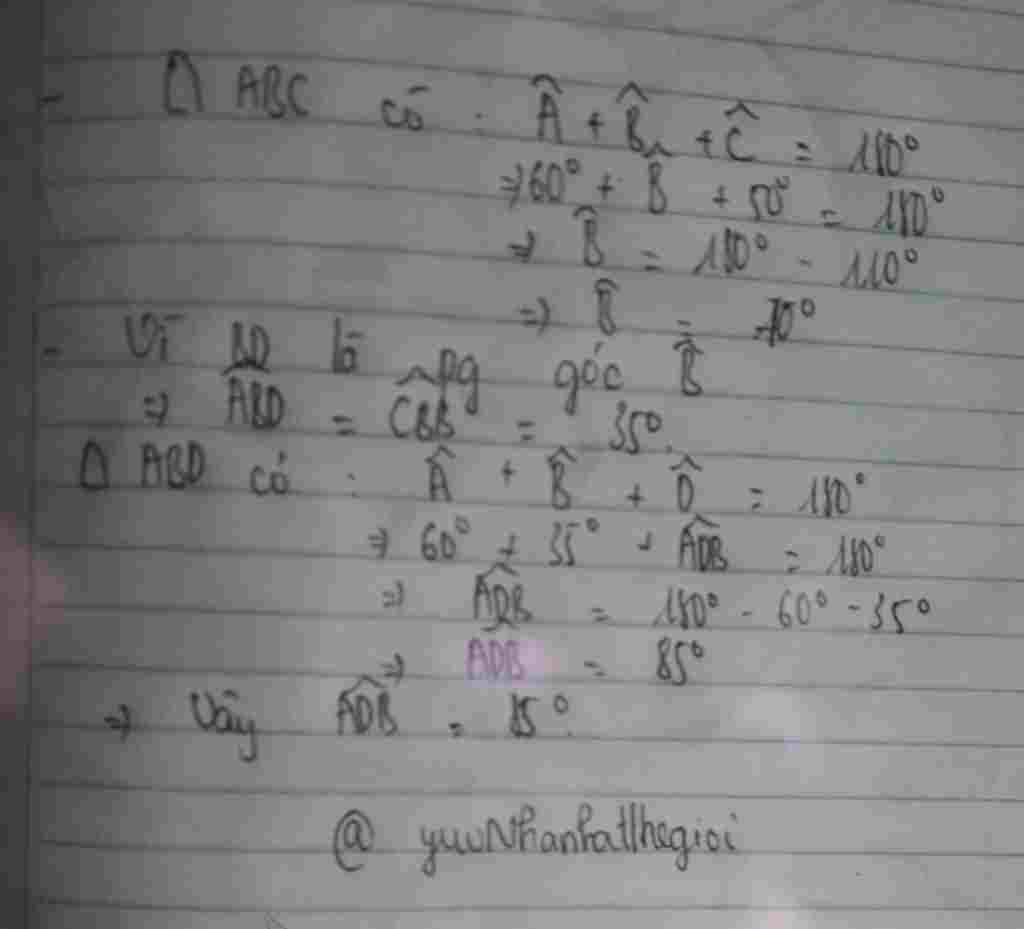 - Δ ABC có : Â + B̂ + Ĉ = 180°
⇒ 60° + B̂ + 50° = 180°
⇒ B̂ = 180° - 110°
⇒ B̂ = 70°
- Vì BD là pg góc B̂
⇒ ABD̂ = CBB̂ = 35°.
Δ ABD có : Â + B̂ + D̂ = 180°
⇒ 60° + 35° + ADB̂ = 180°
⇒ ADB̂ = 180° - 60° - 35°
⇒ ADB = 85°
⇒ Vậy ADB̂ = 85°.
@ yuuNhanhatthegioi